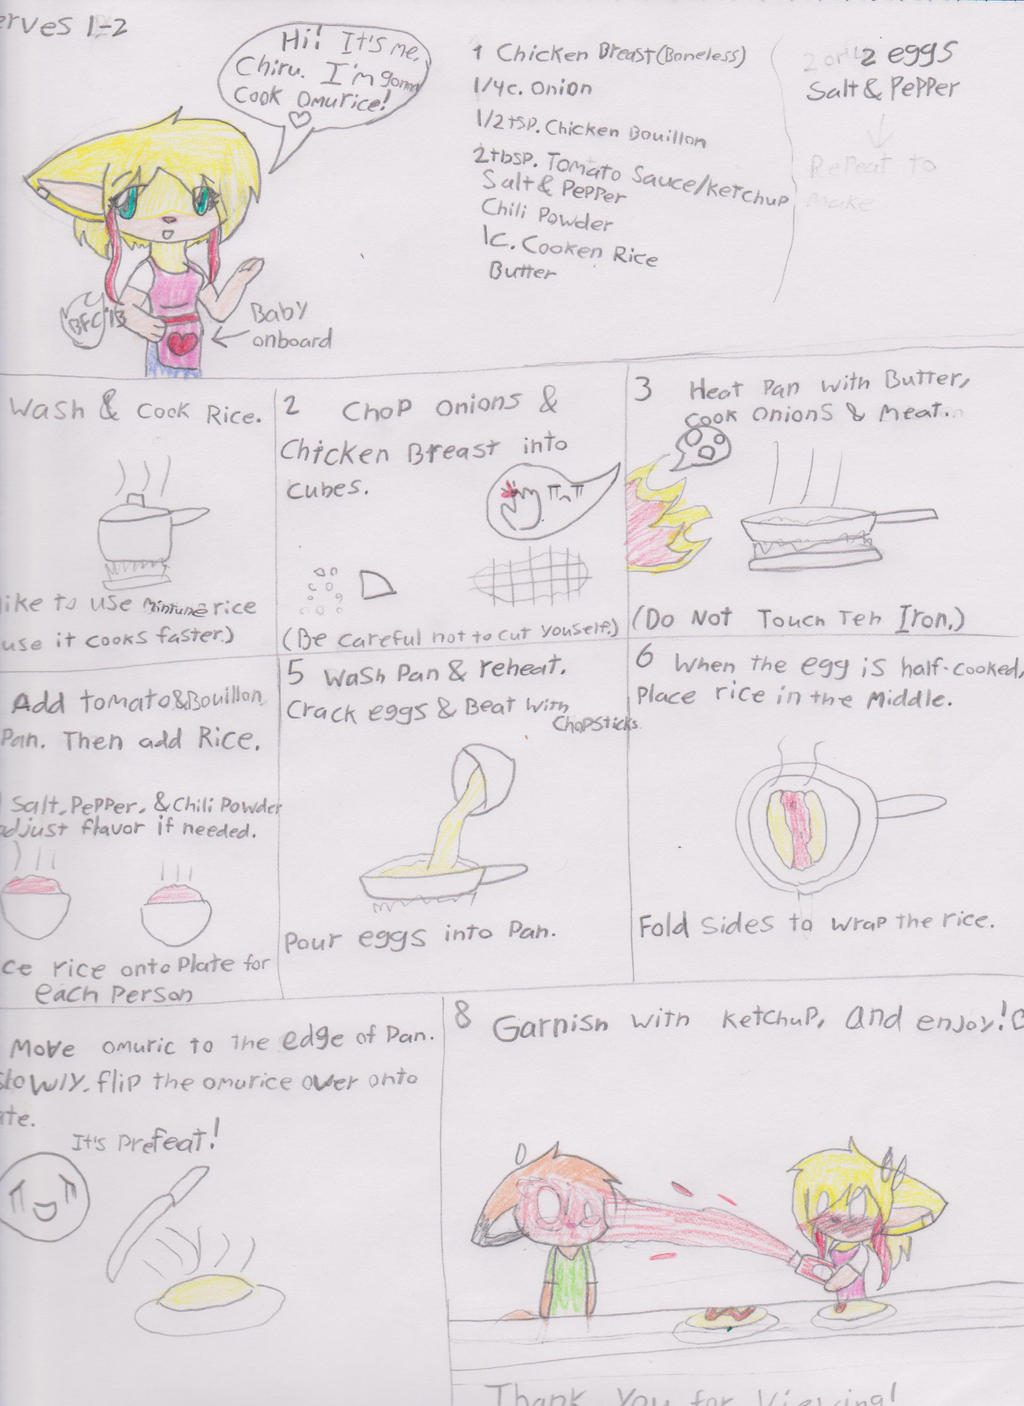 erves 1-2
Hi! It's me,
Chiru. I'm gonna
cook omurice!
BFC '13
Baby
onboard
1 Chicken Breast (Boneless)
1/4c. Onion
1/2 tsp. Chicken Bouillon
2 tbsp. Tomato Sauce/ketchup
Salt & Pepper
Chili Powder
1c. Cooken Rice
Butter
2 or 2 eggs
Salt & Pepper
Repeat to
make
Wash & Cook Rice.
ike to use rice
use it cooks faster.)
2 Chop onions &
Chicken Breast into
cubes.
(Be careful not to cut youself.)
3 Heat Pan with Butter,
cook onions & meat.
(Do Not Touch Teh Iron.)
Add tomato & Bouillon
Pan. Then add Rice.
Salt, Pepper, & Chili Powder
adjust flavor if needed.
ce rice onto Plate for
each Person
5 Wash Pan & reheat.
Crack eggs & Beat with
Chopsticks.
Pour eggs into Pan.
6 When the egg is half-cooked,
Place rice in the middle.
Fold sides to wrap the rice.
Move omuric to the edge of Pan.
Slowly flip the omurice over onto
ate.
It's prefeat!
8 Garnish with ketchup, and enjoy!
Thank You for Viewing!